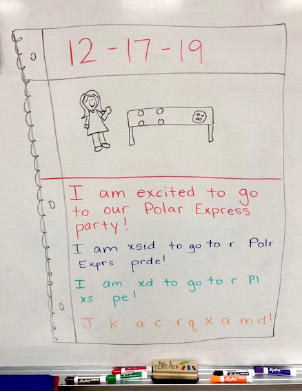 12-17-19
I am excited to go
to our Polar Express
party!
I am xsid to go to r Polr
Exprs prde!
I am xd to go to r Pl
xs pe!
J k a c r q x a m d!
TEACHER